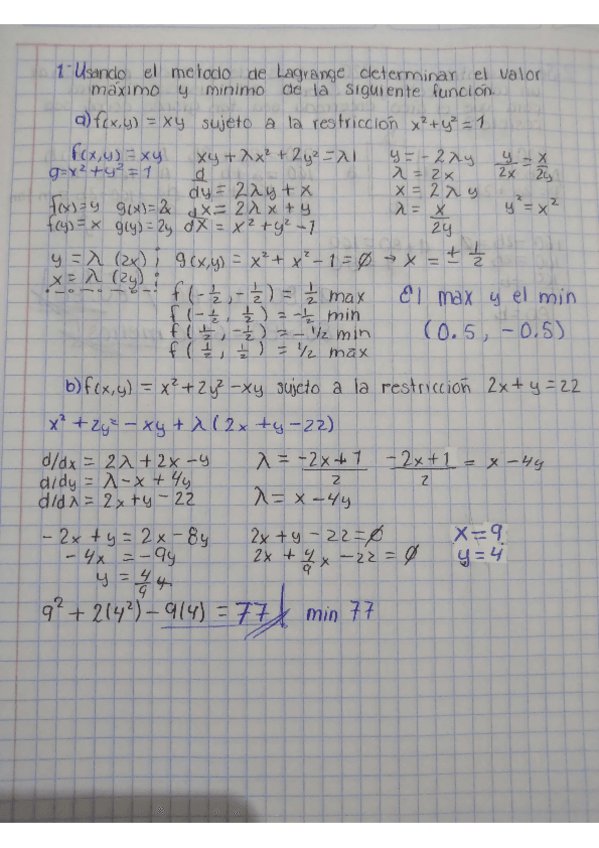 1- Usando el metodo de Lagrange determinar el valor
máximo y minimo de la siguiente función.
a) f(x,y) = xy sujeto a la restricción x²+y²=1
f(x,y) = xy
g=x²+y²=1
f(x)=y g(x)=2x
f(y)=x g(y)=2y
xy+λx²+2y²=λ1
d
dy = 2λy+x
dx = 2λx+y
dx = x²+y²-1
y = -2λy
λ = 2x
x = 2λy
λ = x/2y
y/2x = x/2y
y² = x²
y = λ (2x) ;
x = λ (2y) ;
g(x,y) = x² + x² - 1 = 0 → x = ± 1/2
f(-1/2, -1/2) = 1/2 max
f(-1/2, 1/2) = -1/2 min
f(1/2, -1/2) = -1/2 min
f(1/2, 1/2) = 1/2 max
El max y el min
(0.5, -0.5)
b) f(x,y) = x²+2y²-xy sujeto a la restricción 2x+y=22
x²+2y²-xy+λ(2x+y-22)
d/dx = 2λ+2x-y
d/dy = λ-x+4y
d/dλ = 2x+y-22
λ = -2x+1/2
-2x+1/2 = x-4y
λ = x-4y
-2x+y = 2x-8y
-4x = -9y
y = 4/9 x
2x+y-22=0
2x+4/9x-22=0
x=9
y=4
9²+2(4²)-9(4) = 77
min 77